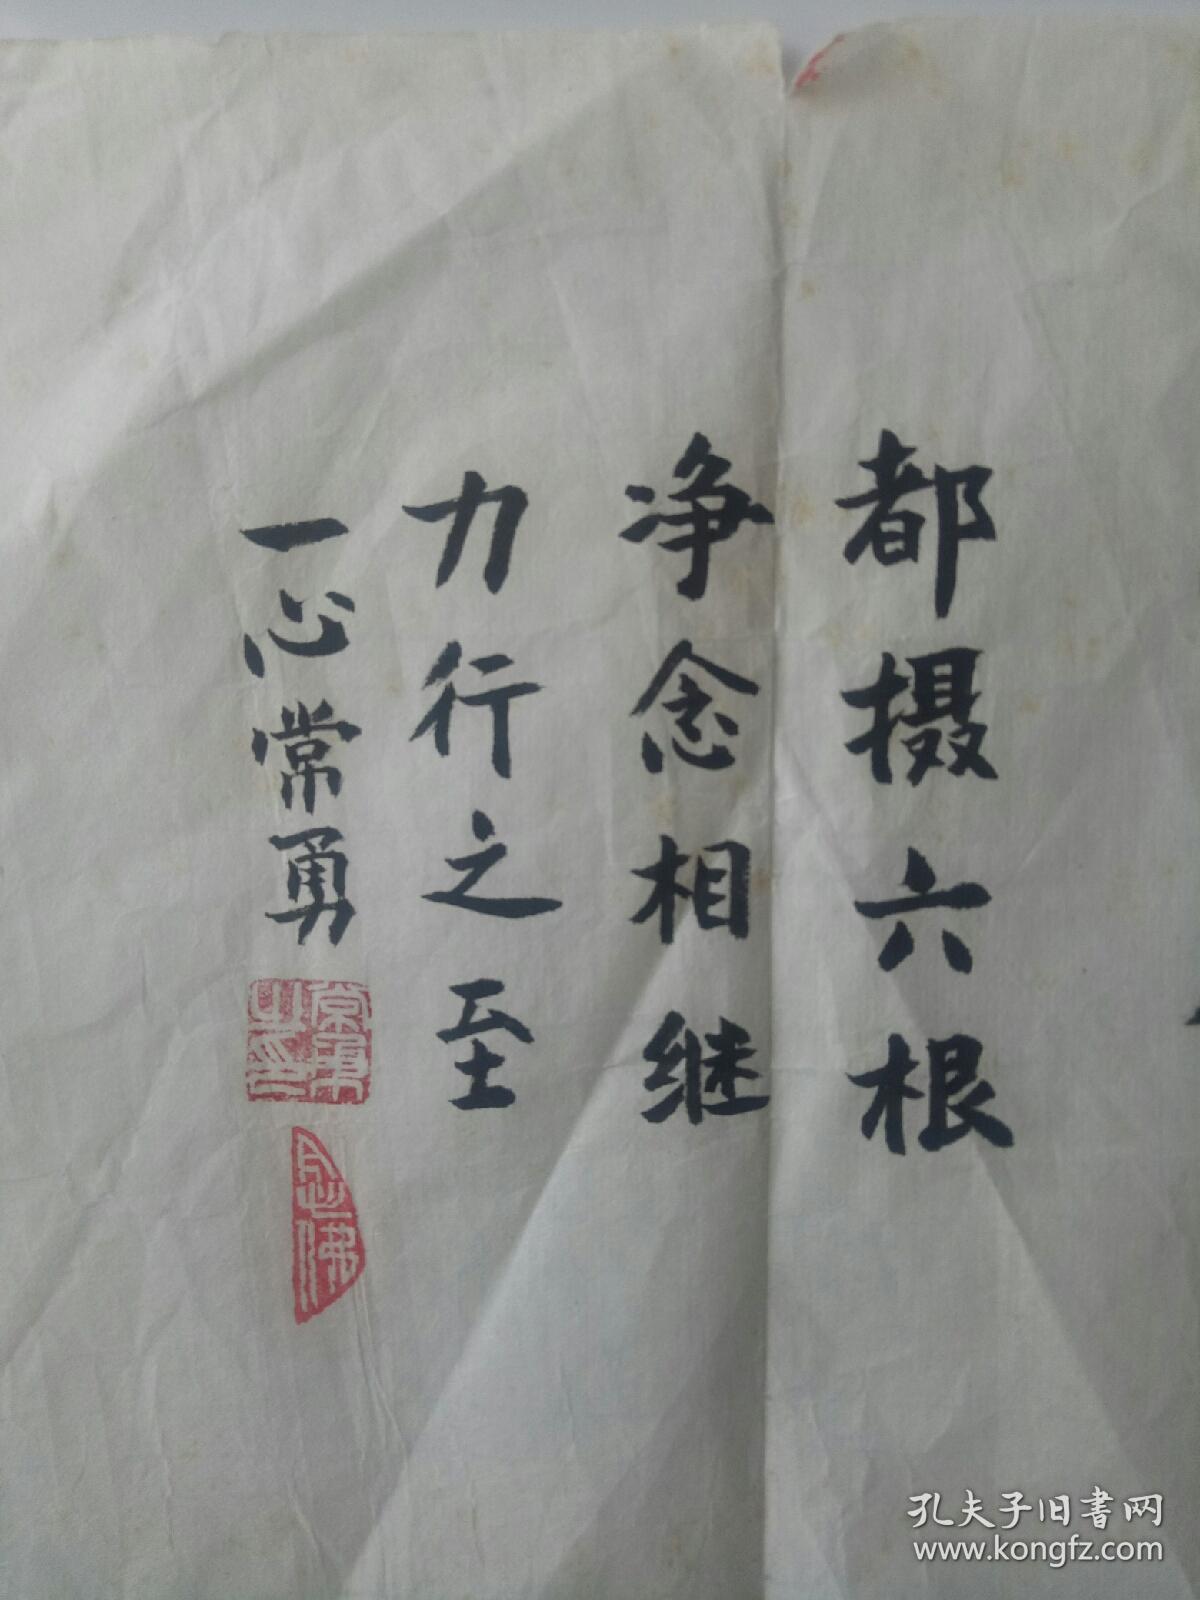 都摄六根
净念相继
力行之至
一心常勇
常勇之印
念佛
孔夫子旧书网
www.kongfz.com